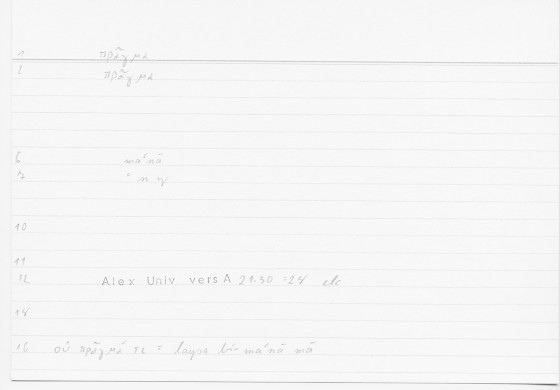 1 πρᾶγμα
2 πρᾶγμα
6 maʿnā
7
10
11
12 Alex Univ vers A 21.30 = 24 etc
14
16 οὐ πρᾶγμά τι = laysa bi- maʿnā mā